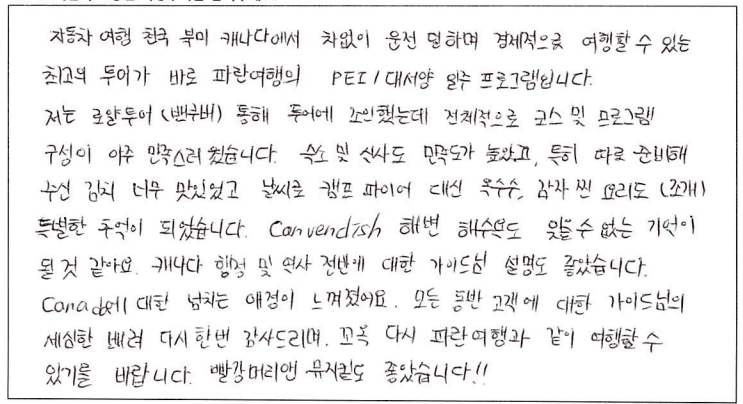 자동차 여행 천국 북미 캐나다에서 차없이 운전 덜하며 경제적으로 여행할 수 있는
최고의 투어가 바로 파란여행의 PEI/대서양 일주 프로그램입니다.
저는 로얄투어(밴쿠버) 통해 투어에 조인했는데 전체적으로 코스 및 프로그램
구성이 아주 만족스러웠습니다. 숙소 및 식사도 만족도가 높았고, 특히 따로 준비해
주신 김치 너무 맛있었고 날씨로 캠프 파이어 대신 옥수수, 감자 찐 요리도 (조개)
특별한 추억이 되었습니다. Canvendish 해변 해수욕도 잊을 수 없는 기억이
될 것 같아요. 캐나다 행정 및 역사 전반에 대한 가이드님 설명도 좋았습니다.
Canada에 대한 넘치는 애정이 느껴졌어요. 모든 동반 고객에 대한 가이드님의
세심한 배려 다시 한번 감사드리며, 꼬옥 다시 파란여행과 같이 여행할 수
있기를 바랍니다. 빨강머리앤 뮤지컬도 좋았습니다!!